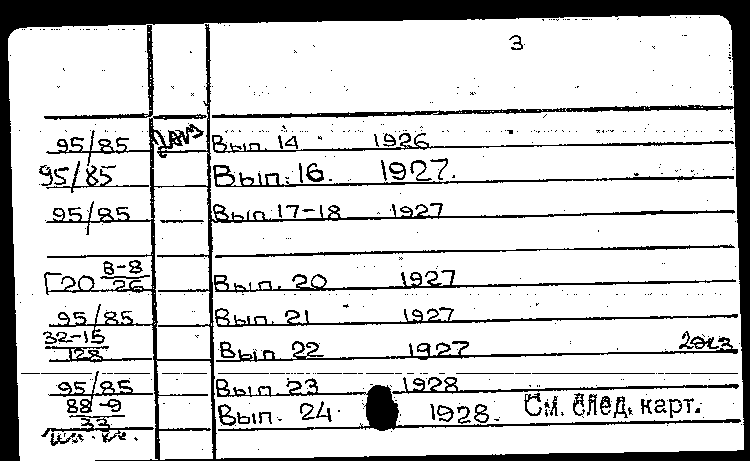 3
95/85 Вып. 14 1926
95/85 Вып. 16. 1927.
95/85 Вып. 17-18 1927
Г20 В-8/26 Вып. 20 1927
95/85 Вып. 21 1927
32-15/128 Вып. 22 1927 2экз
95/85 Вып. 23 1928
88-9/33 Вып. 24. 1928. См. след. карт.